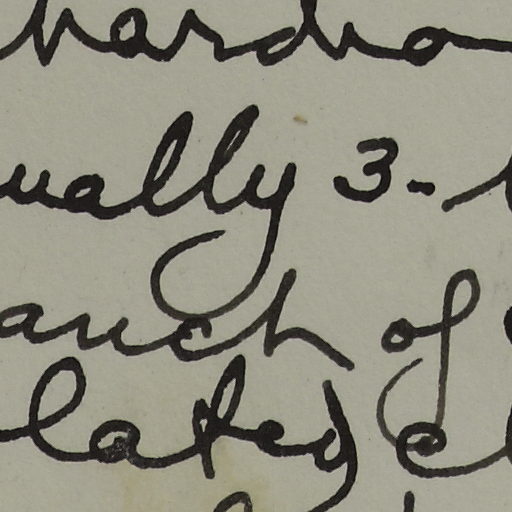 hardro
ually 3-
anch of
lated cl